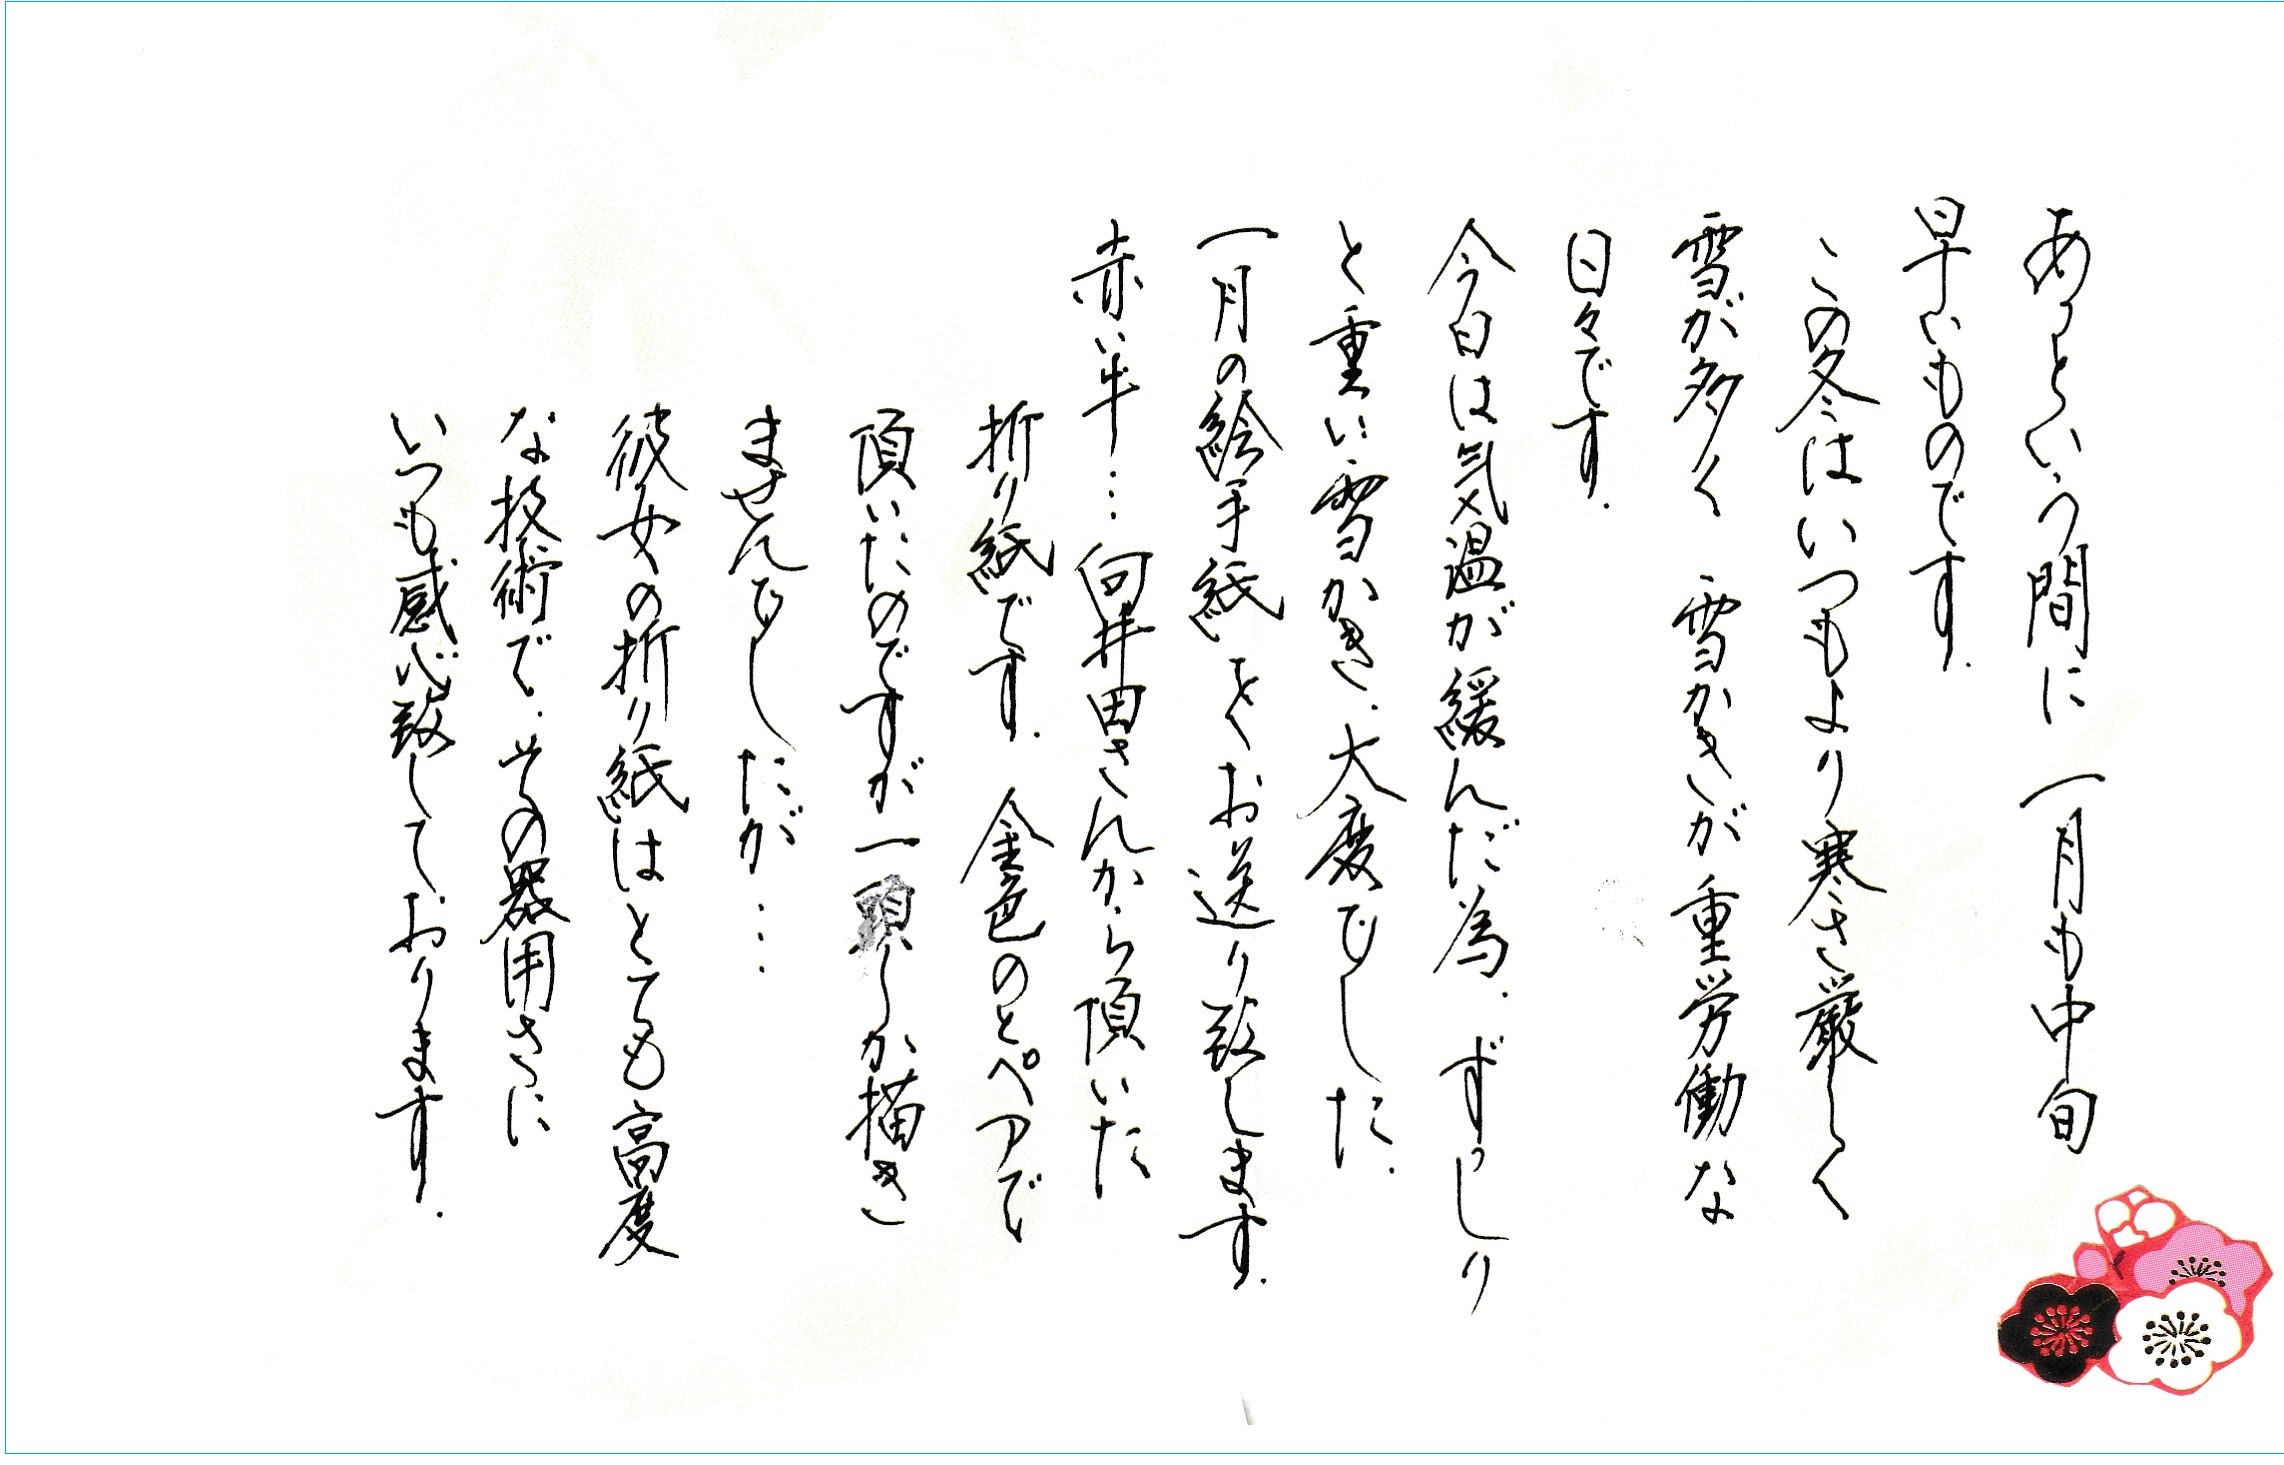 あっという間に 一月も中旬
早いものです.
この冬はいつもより寒さ厳しく
雪が多く 雪かきが重労働な
日々です.
今日は気温が緩んだ為. ずっしり
と重い雪かき. 大変でした.
一月の絵手紙をお送り致します.
赤い牛… 向井田さんから頂いた
折り紙です. 金色のとペアで
頂いたのですが一頭しか描き
ませんでしたが…
彼女の折り紙はとても高度
な技術で. その器用さに
いつも感心致しております.